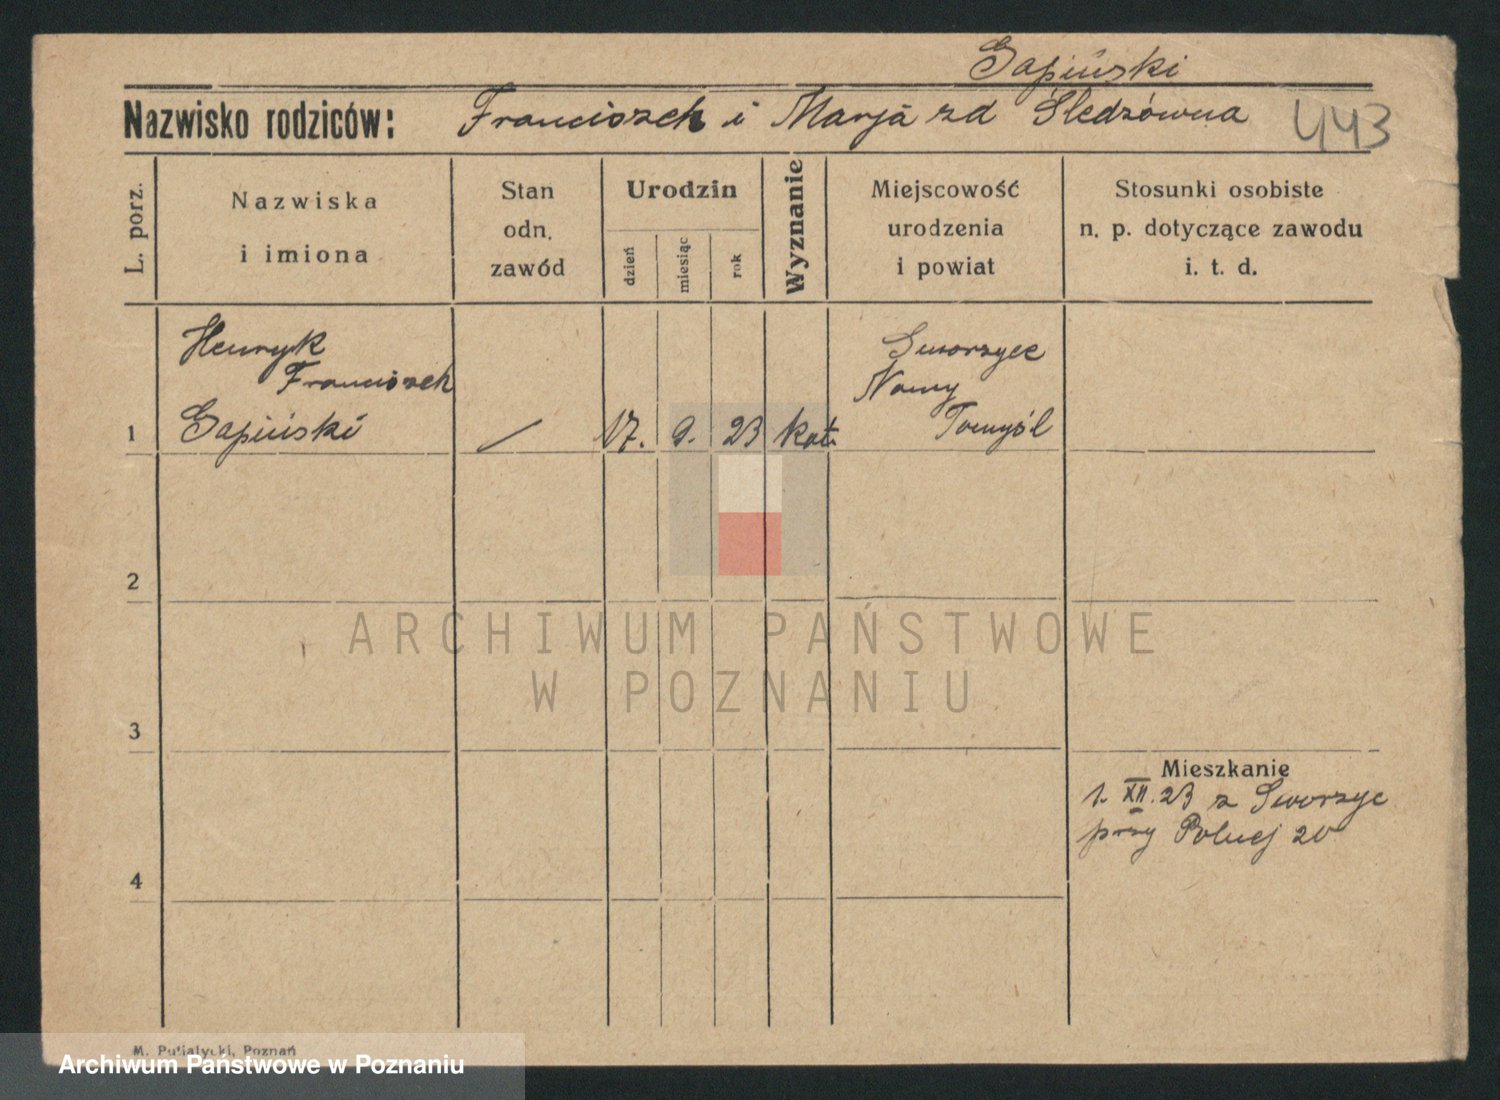 Gapiński
Nazwisko rodziców: Franciszek i Marja zd Śledzówna 443
L. porz.
Nazwiska
i imiona
Stan
odn.
zawód
Urodzin
dzień
miesiąc
rok
Wyznanie
Miejscowość
urodzenia
i powiat
Stosunki osobiste
n. p. dotyczące zawodu
i. t. d.
Henryk
Franciszek
1 Gapiński / 17. 9. 23 kat.
Sworzyce
Nowy
Tomyśl
2
ARCHIWUM PAŃSTWOWE
W POZNANIU
3
Mieszkanie
1. XII. 23 z Sworzyc
przy Polnej 20
4
M. Putiatycki, Poznań
Archiwum Państwowe w Poznaniu